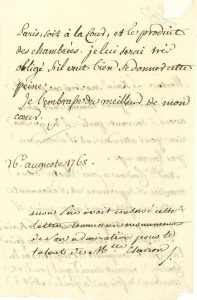 Paris, soit à la Cour, et le produit
des chambres. je lui serai très
obligé s'il veut bien se donner cette
peine.
Je t'embrasse du meilleur de mon
cœur.
26. auguste 1765.
mon avait cette
lettre comme monument
de son admiration pour le
talent de Mlle Clairon